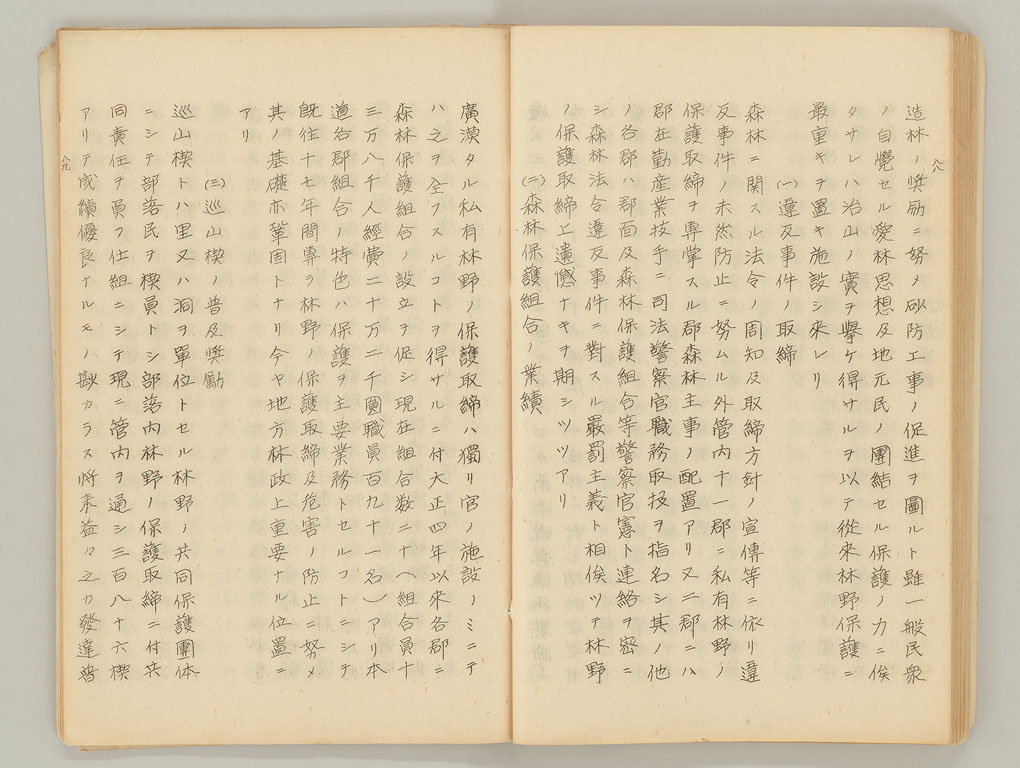 八八
造林ノ奨励ニ努メ砂防工事ノ促進ヲ圖ルト雖一般民衆
ノ自覺セル愛林思想及地元民ノ團結セル保護ノ力ニ俟
タサレハ治山ノ實ヲ擧ケ得サルヲ以テ從來林野保護ニ
最重キヲ置キ施設シ來レリ
(一)違反事件ノ取締
森林ニ関スル法令ノ周知及取締方針ノ宣傳等ニ依リ違
反事件ノ未然防止ニ努ムル外管内十一郡ニ私有林野ノ
保護取締ヲ専掌スル郡森林主事ノ配置アリ又二郡ニハ
郡在勤産業技手ニ司法警察官職務取扱ヲ指名シ其ノ他
ノ各郡ハ郡面及森林保護組合等警察官憲ト連絡ヲ密ニ
シ森林法令違反事件ニ對スル嚴罰主義ト相俟ツテ林野
ノ保護取締上遺憾ナキヲ期シツツアリ
(二)森林保護組合ノ業績
廣漠タル私有林野ノ保護取締ハ獨リ官ノ施設ノミニテ
ハ之ヲ全フスルコトヲ得サルニ付大正四年以來各郡ニ
森林保護組合ノ設立ヲ促シ現在組合数二十(組合員十
三万八千人經費二十万二千圓職員百九十一名)アリ本
道各郡組合ノ特色ハ保護ヲ主要業務トセルコトニシテ
既往十七年間專ラ林野ノ保護取締及危害ノ防止ニ努メ
其ノ基礎亦鞏固トナリ今ヤ地方林政上重要ナル位置ニ
アリ
(三)巡山楔ノ普及奨勵
巡山楔トハ里又ハ洞ヲ單位トセル林野ノ共同保護團体
ニシテ部落民ヲ楔員トシ部落内林野ノ保護取締ニ付共
同責任ヲ負フ仕組ニシテ現ニ管内ヲ通シ三百八十六楔
アリテ成績優良ナルモノ尠カラス将来益々之カ發達普
八九